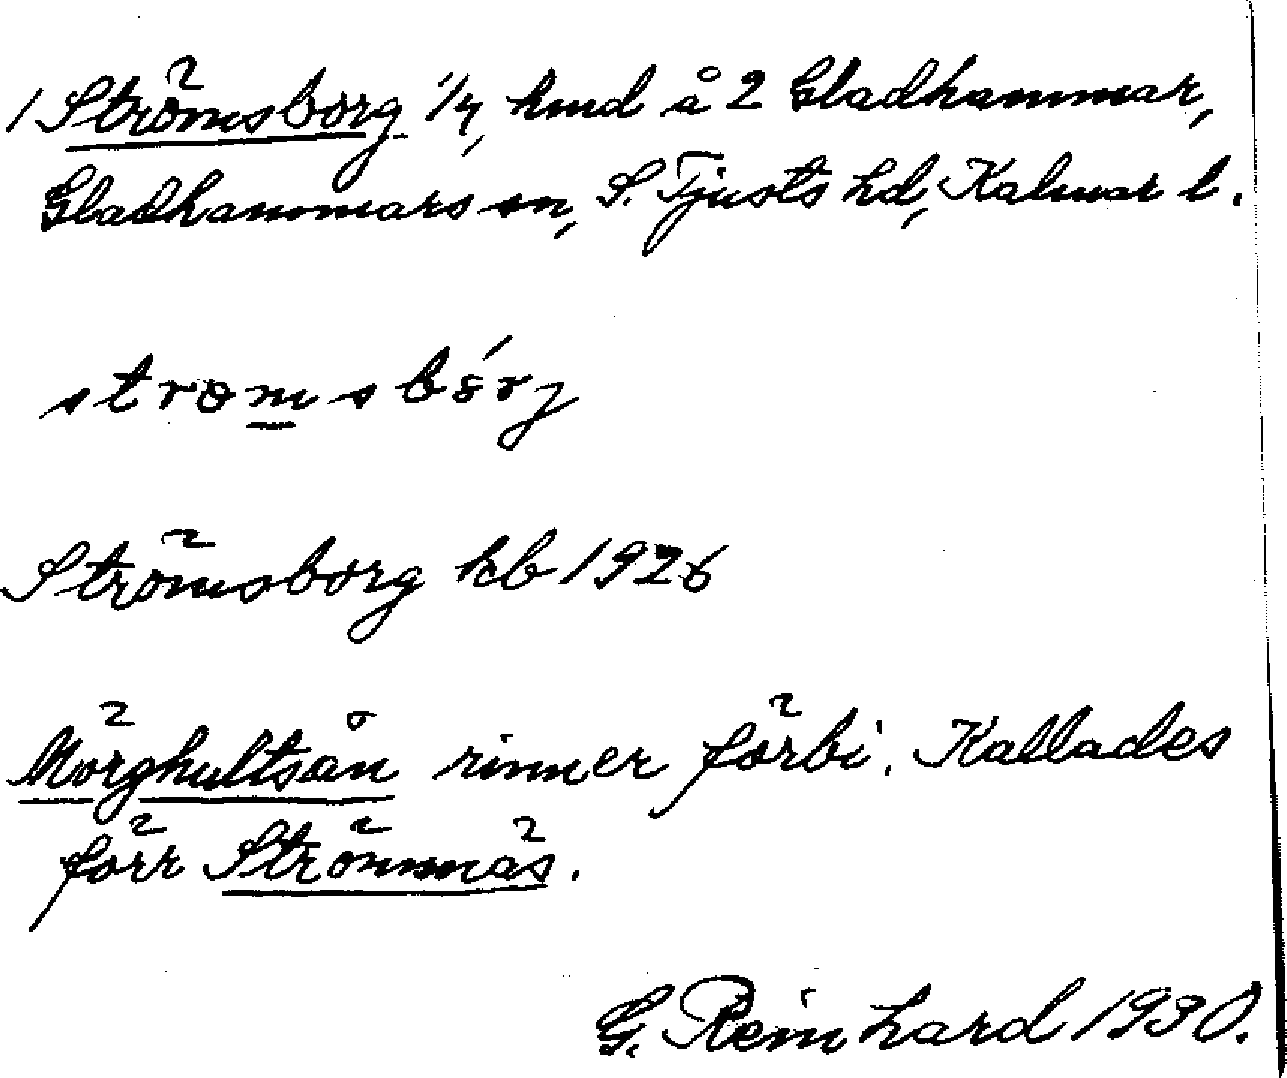 1 Strömsborg 1/4, hmd å 2 Gladhammar,
Gladhammars sn, S. Tjusts hd, Kalmar l.
stromsbórj
Strömsborg kb 1926
Mörghultsån rinner förbi. Kallades
förr Strömnäs.
G. Reinhard 1930.